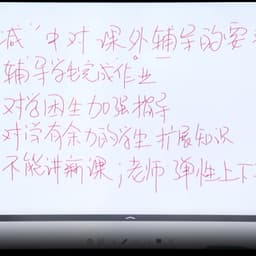 减”中对课外辅导的要
辅导学生完成作业
对学困生加强指导
对学有余力的学生扩展知识
不能讲新课;老师弹性上下